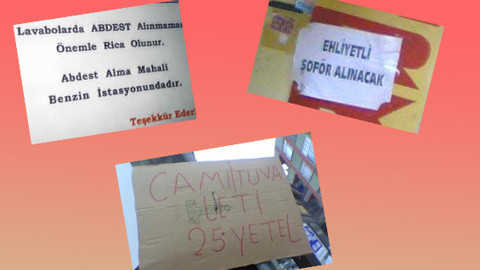 Lavabolarda ABDEST Alınmaması
Önemle Rica Olunur.
Abdest Alma Mahali
Benzin İstasyonundadır.
Teşekkür Eder
EHLİYETLİ
ŞOFÖR ALINACAK
CAMİİTUVA
LETİ
25YETEL